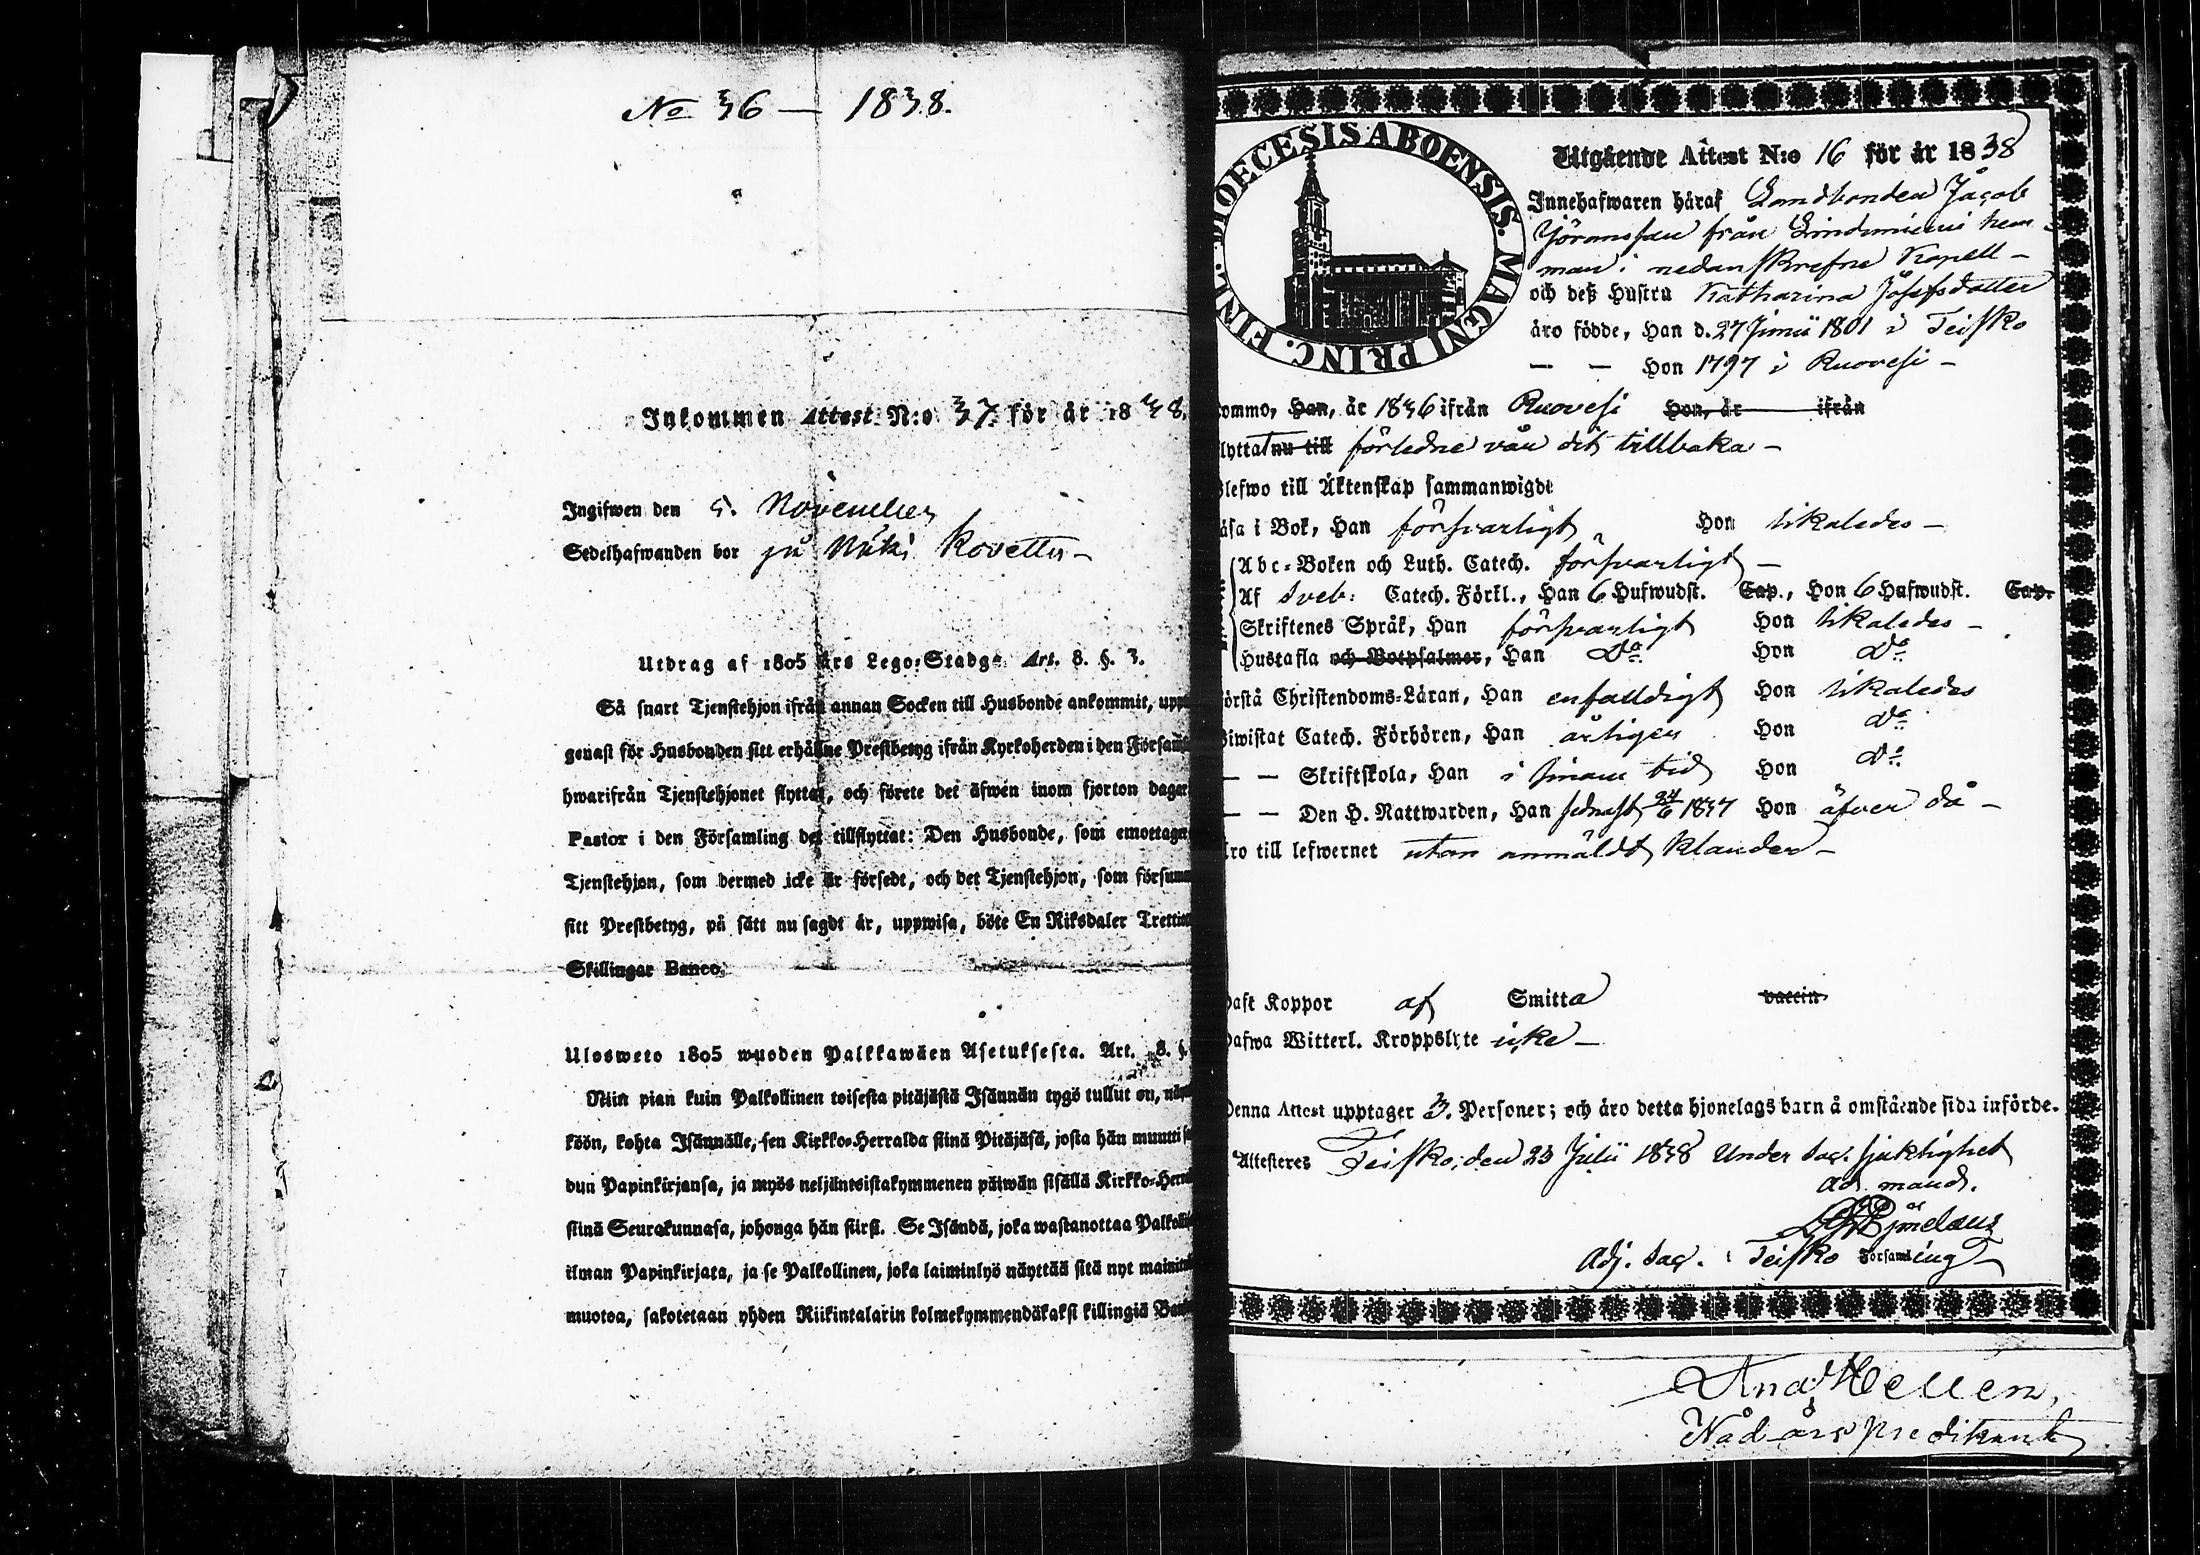 No 36 — 1838.
Inkommen Attest N:o 37. för år 1838.
Ingifwen den 5. November
Sedelhafwanden bor på Mäki Rovetti –
Utdrag af 1805 års Lego-Stadga Art. 8. §. 3.
Så snart Tjenstehjon ifrån annan Socken till Husbonde ankommit, upp
genast för Husbonden sitt erhållne Prestbetyg ifrån Kyrkoherden i den Försam
hwarifrån Tjenstehjonet flyttat, och förete det äfwen inom fjorton dagar
Pastor i den Församling det tillflyttat: Den Husbonde, som emottager
Tjenstehjon, som dermed icke är försedt, och det Tjenstehjon, som försum
sitt Prestbetyg, på sätt nu sagdt är, uppwisa, böte En Riksdaler Tretti
Skillingar Banco.
Ulosweto 1805 wuoden Palkkawäen Asetuksesta. Art. 8. §.
Niin pian kuin Palkollinen toisesta pitäjästä Isännän tygö tullut on, näy
köön, kohta Isännälle, sen Kirkko-Herralda siinä Pitäjäsä, josta hän muutti sa
dun Papinkirjansa, ja myös neljäntoistakymmenen päiwän sisällä Kirkko-Herra
siinä Seurakunnasa, johonga hän siirsi. Se Isändä, joka wastanottaa Palkolli
ilman Papinkirjata, ja se Palkollinen, joka laiminlyö näyttää sitä nyt mainitu
muotoa, sakotetaan yhden Riikintalarin kolmekymmendäkaksi killingiä Ban
DIOECESIS ABOENSIS. MAGNI PRINC. FINL.
Utgående Attest N:o 16 för år 1838
Innehafwaren häraf Landbonden Jacob
Jöransson från Linduniemi hem
man i nedanskrefne Kapell –
och deß Hustru Katharina Josefsdotter
äro födde, Han d. 27 Junii 1801 i Teisko
— — Hon 1797 i Ruovesi –
ommo, Han, år 1836 ifrån Ruovesi Hon, år ifrån
lytta nu till förledne vår dit tillbaka –
Blefwo till Äktenskap sammanwigde
äsa i Bok, Han försvarligt Hon likaledes –
Abc-Boken och Luth. Catech. försvarligt –
Af Sveb: Catech. Förkl., Han 6 Hufwudst. Cap., Hon 6 Hufwudst. Cap.
Skriftenes Språk, Han försvarligt Hon likaledes –
Hustafla och Botpsalmer, Han Do Hon Do
örstå Christendoms-Läran, Han enfaldigt Hon likaledes
Biwistat Catech. Förhören, Han årligen Hon Do
— — Skriftskola, Han i sinom tid Hon Do
— — Den H. Nattwarden, Han senast 24/6 1837 Hon äfven då –
Äro till lefwernet utan anmäldt klander –
Haft Koppor af Smitta vaccin
Hafwa Witterl. Kroppslyte icke –
Denna Attest upptager 3. Personer; och äro detta hjonelags barn å omstående sida införde.
Attesteres Teisko, den 23 Julii 1838 Under Sac. sjuklighet
ad mand.
Björklund
Adj. Sac. i Teisko Församling
And. Hellén,
Nådårspredikant